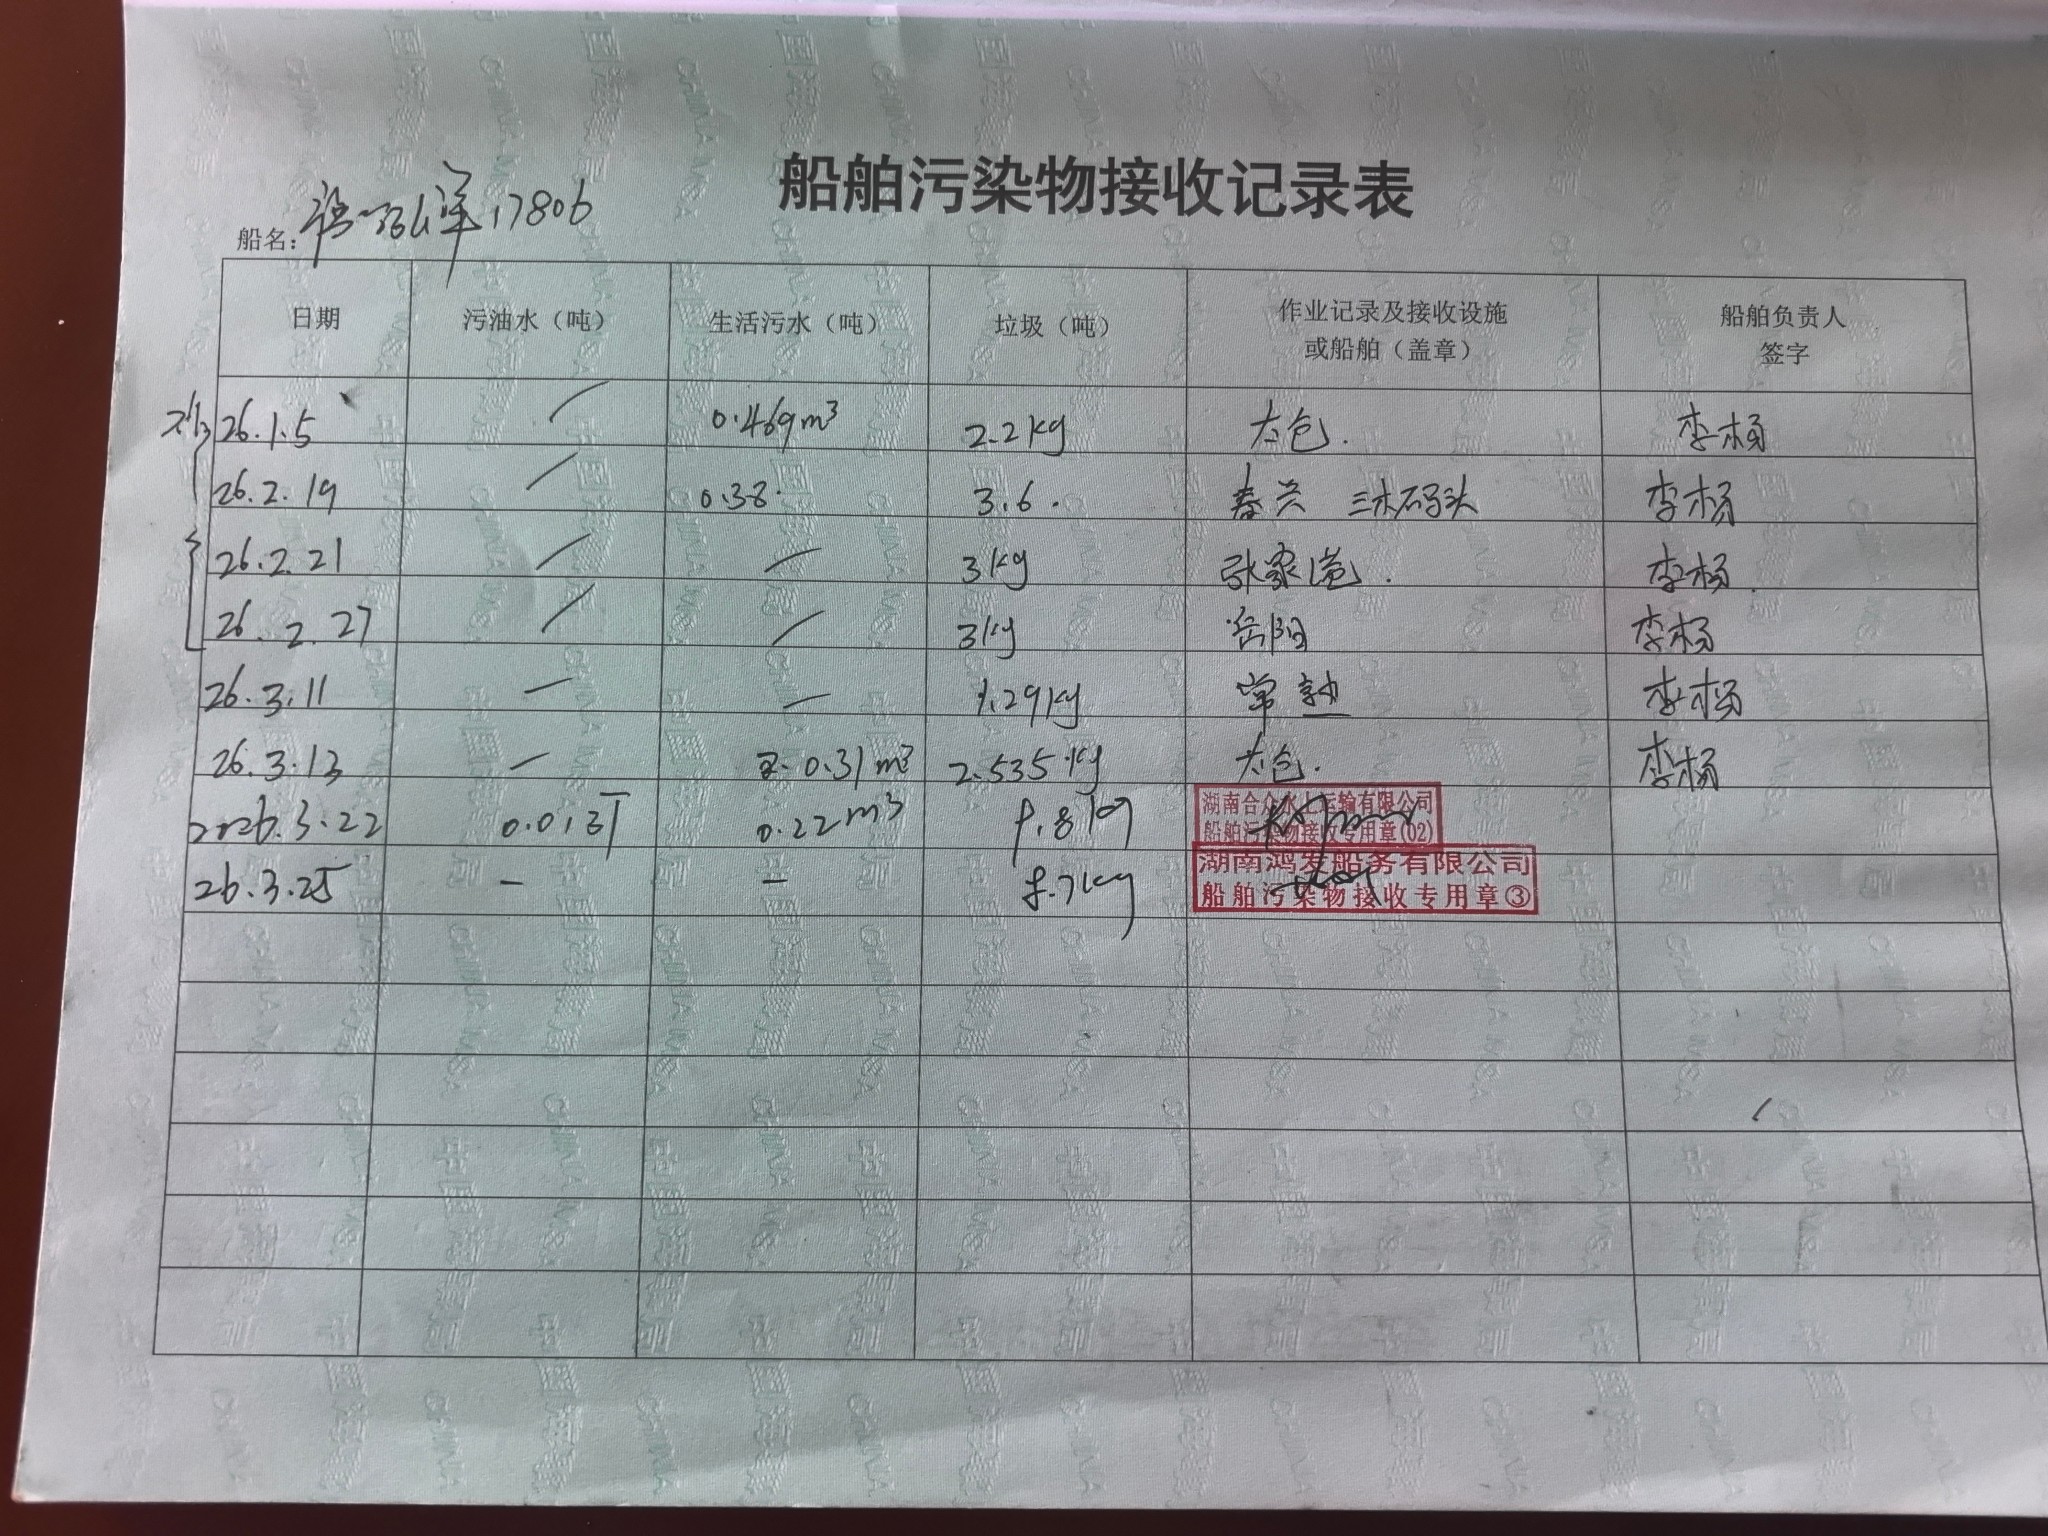 船舶污染物接收记录表
船名： 17806
日期 污油水（吨） 生活污水（吨） 垃圾（吨） 作业记录及接收设施或船舶（盖章） 船舶负责人签字
26.1.5 / 0.469m³ 2.2kg 太仓. 李杨
26.2.19 / 0.38. 3.6. 春兴 三木码头 李杨
26.2.21 / — 3kg 张家港. 李杨.
26.2.27 / / 3kg 岳阳 李杨
26.3.11 — — 1.29kg 常熟 李杨
26.3.13 — 0.31m³ 2.535kg 太仓. 李杨
2026.3.22 0.22m³ 湖南合众水上运输有限公司
船舶污染物接收专用章(02)
26.3.25 — — 湖南鸿发船务有限公司
船舶污染物接收专用章③